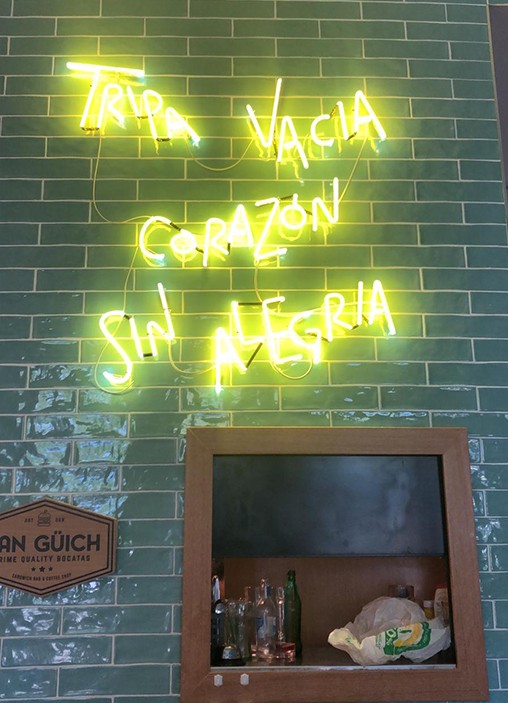 TRIPA VACIA
CORAZÓN
SIN ALEGRIA
AN GÜICH
RIME QUALITY BOCATAS
SANDWICH BAR & COFFEE SHOP